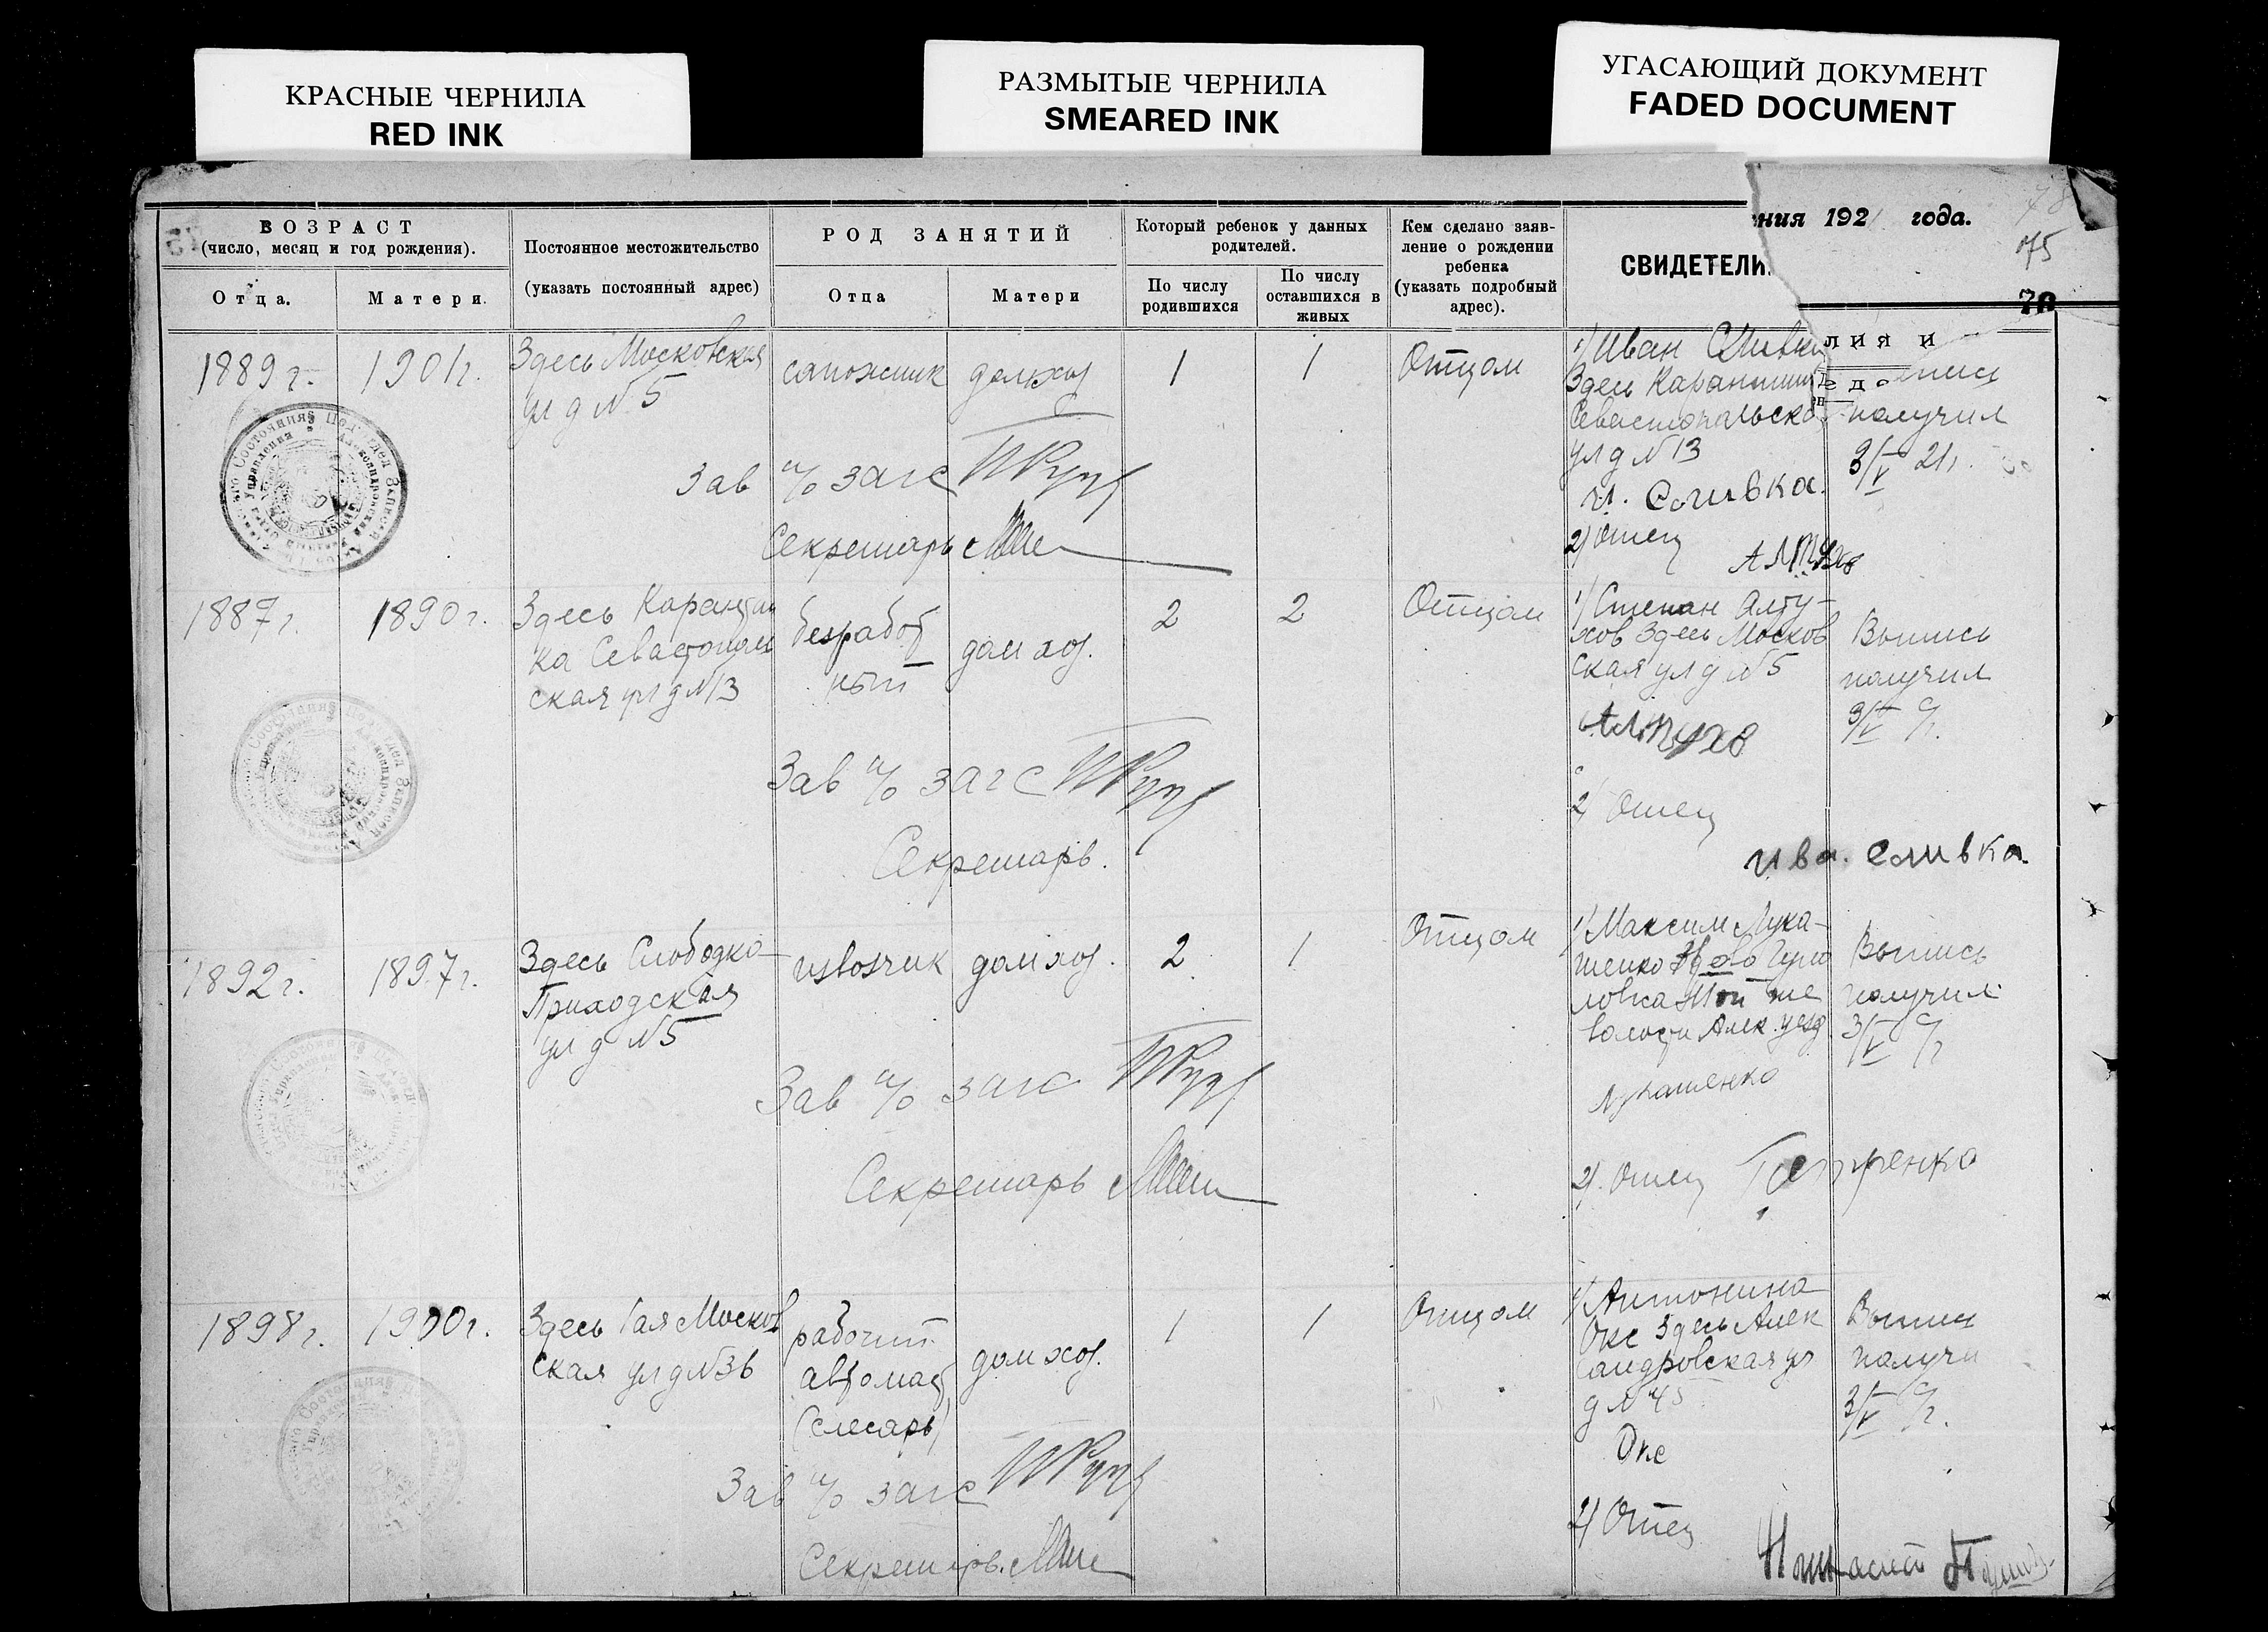 КРАСНЫЕ ЧЕРНИЛА
RED INK
РАЗМЫТЫЕ ЧЕРНИЛА
SMEARED INK
УГАСАЮЩИЙ ДОКУМЕНТ
FADED DOCUMENT
ния 192 года.
75
ВОЗРАСТ
(число, месяц и год рождения).
Отца.
Матери.
Постоянное местожительство
(указать постоянный адрес)
РОД ЗАНЯТИЙ
Отца
Матери
Который ребенок у данных
родителей.
По числу
родившихся
По числу
оставшихся в
живых
Кем сделано заяв-
ление о рождении
ребенка
(указать подробный
адрес).
СВИДЕТЕЛИ
лия и
1889 г.
1901 г.
Здесь Московская
ул д № 5
сапожник
дом хоз
1
1
Отцом
1) Иван Сливка
Здесь Карантин
Севастопольска
ул д № 13
И. Сливка.
2) Отец
получил
3/V 21 г.
Зав п/о загс
Секретарь
1887 г.
1890 г.
Здесь Карантин
ка Севастополь
ская ул д № 13
безработ
ный
дом хоз.
2
2
Отцом
1) Степан Алту-
хов Здесь Москов
ская ул д № 5
Алтухов
2) Отец
Ива. Сливка.
Выпись
получил
3/V с/г.
Зав п/о загс
Секретарь.
1892 г.
1897 г.
Здесь Слободка
Приходская
ул д № 5
извозчик
дом хоз.
2
1
Отцом
1) Максим Лука-
шенко
волости Алек. уезд
Лукашенко
2). Отец
Выпись
получил
3/V с/г
Зав п/о загс
Секретарь
1898 г.
1900 г.
Здесь 1ая Москов
ская ул д № 36
рабочий
автомаст
(слесарь)
дом хоз.
1
1
Отцом
1) Антонина
Окс Здесь Алек
сандровская ул
д № 45
Окс
2) Отец
Выпись
получи
3/V с/г.
Зав п/о загс
Секретарь.